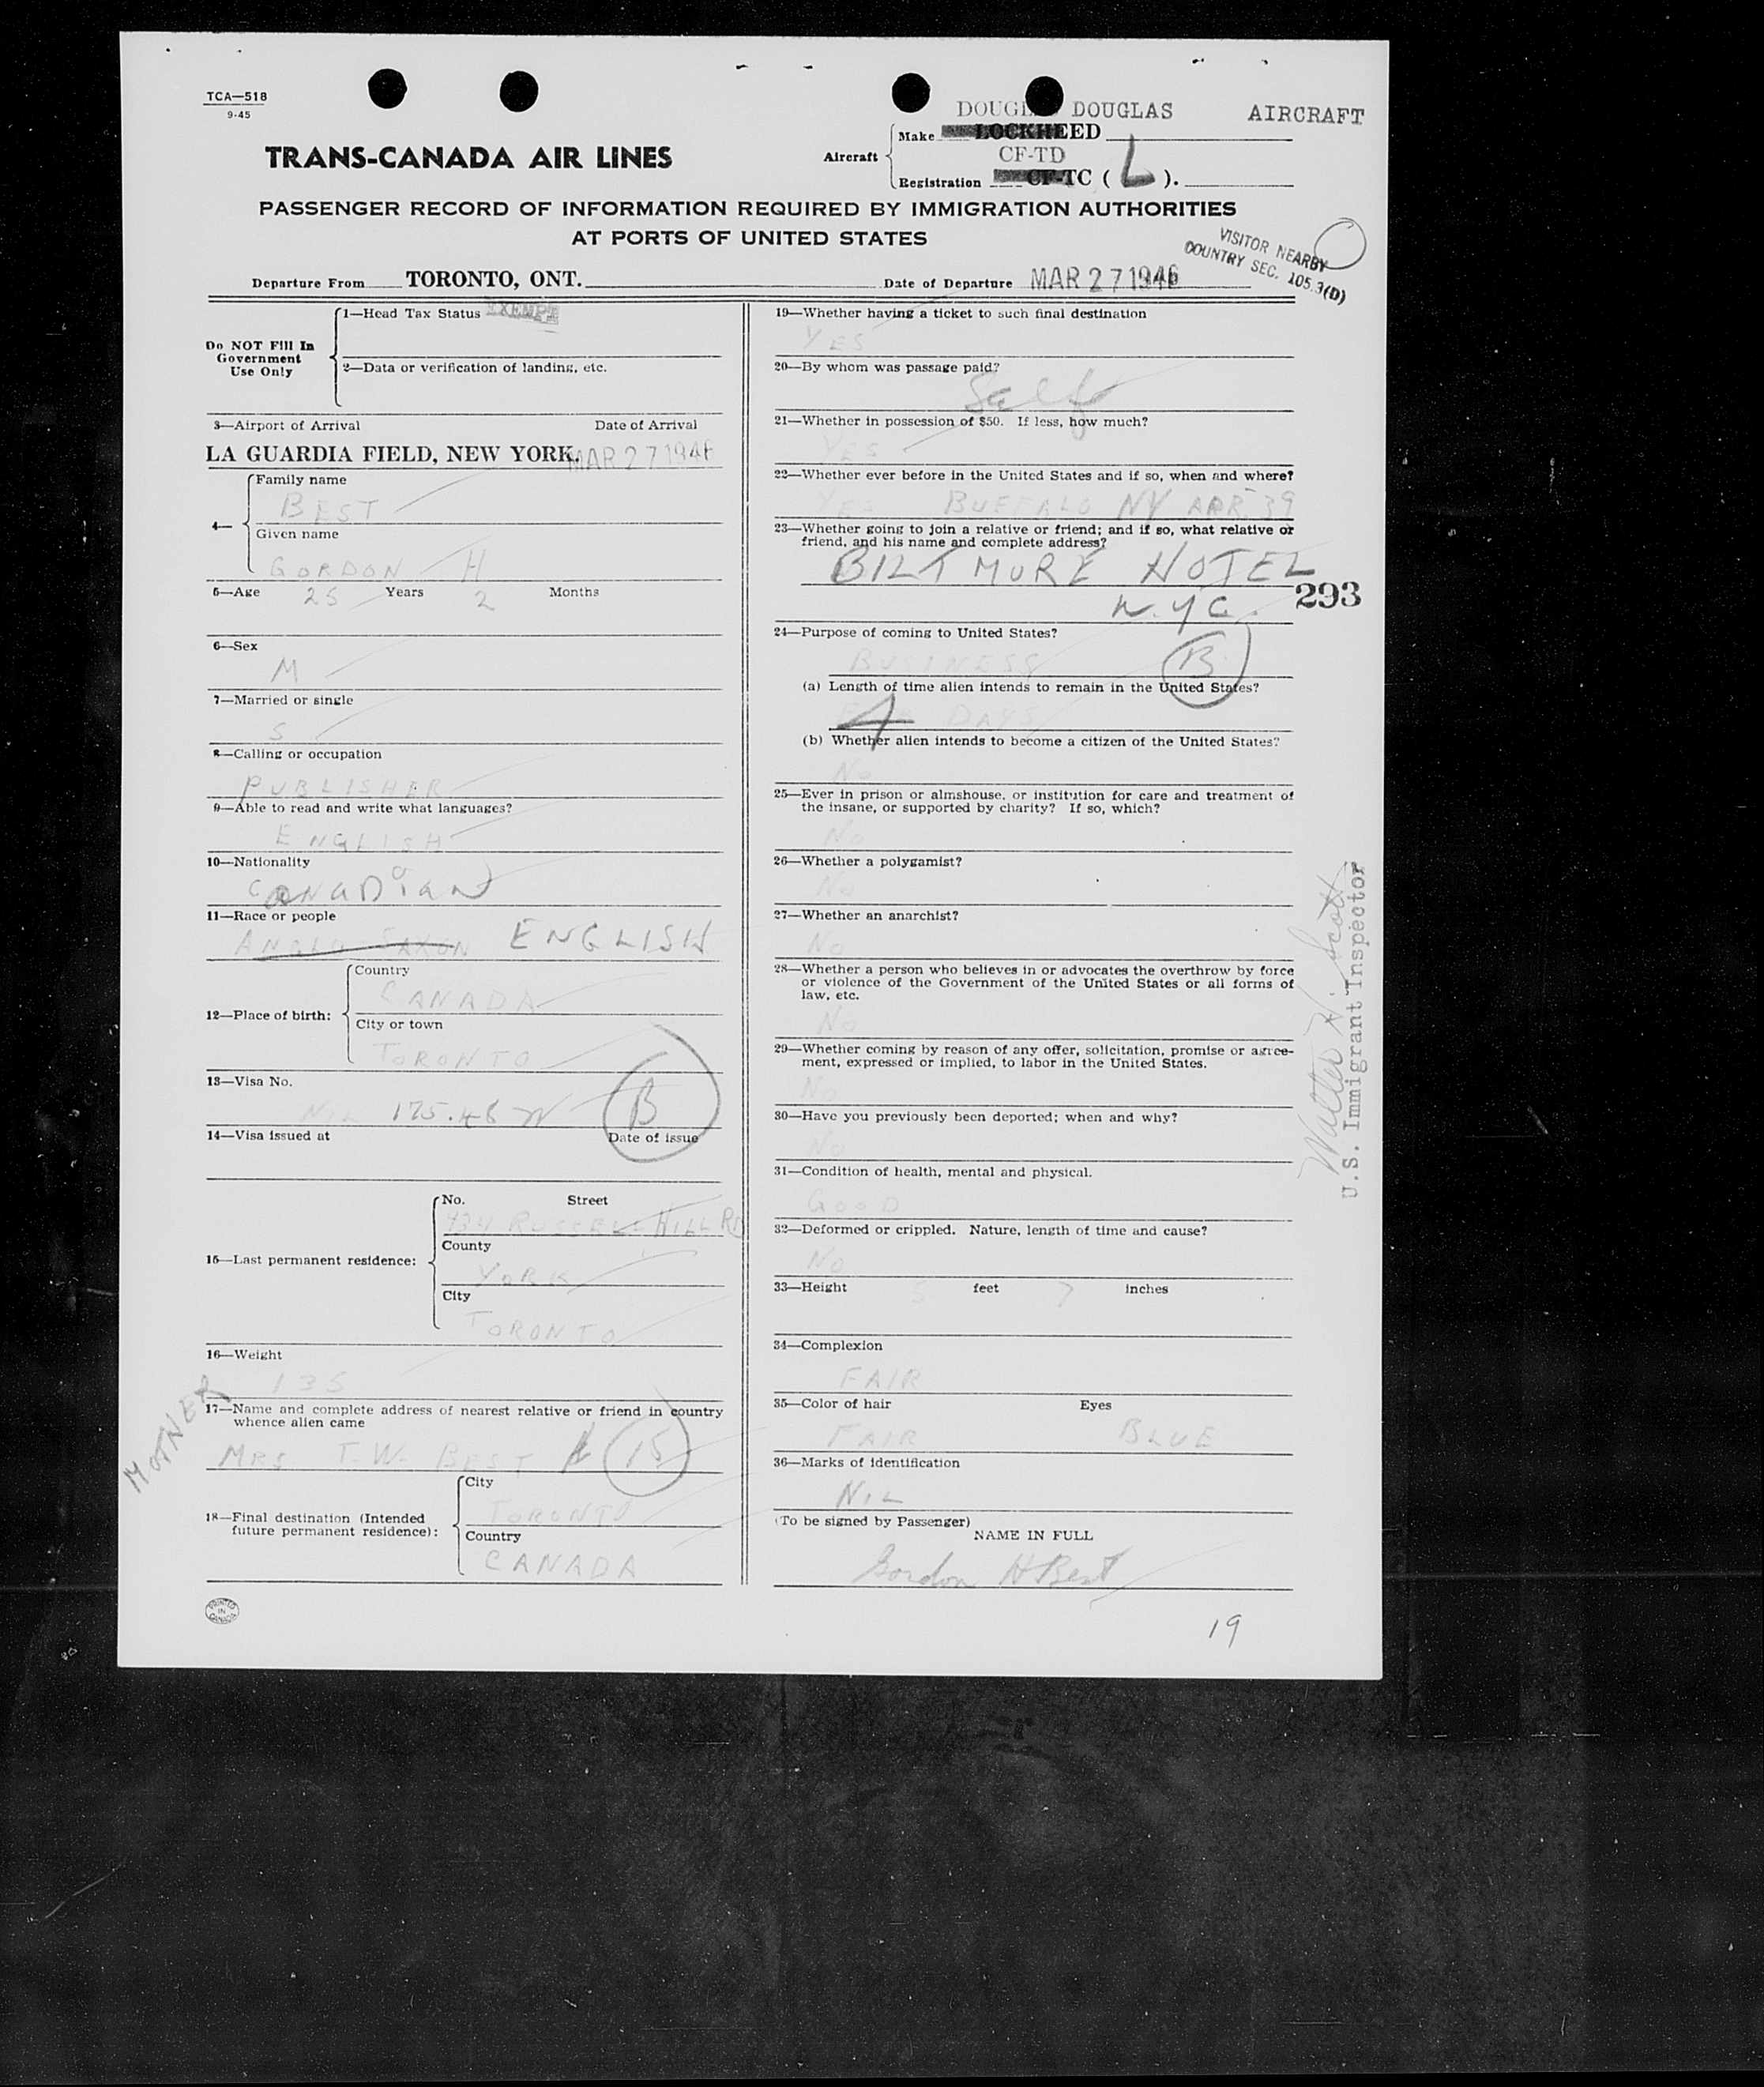 TCA—518
9-45
DOUGLAS DOUGLAS AIRCRAFT
Make LOCKHEED
TRANS-CANADA AIR LINES
Aircraft
CF-TD
Registration CF-TC ( L ).
PASSENGER RECORD OF INFORMATION REQUIRED BY IMMIGRATION AUTHORITIES
AT PORTS OF UNITED STATES
VISITOR NEARBY
COUNTRY SEC. 105.3(D)
Departure From TORONTO, ONT. Date of Departure MAR 27 1946
Do NOT Fill In
Government
Use Only
1—Head Tax Status EXEMPT
2—Data or verification of landing, etc.
3—Airport of Arrival Date of Arrival
LA GUARDIA FIELD, NEW YORK. MAR 27 1946
4—
Family name
BEST
Given name
GORDON H
5—Age 25 Years 2 Months
6—Sex
M
7—Married or single
S
8—Calling or occupation
PUBLISHER
9—Able to read and write what languages?
ENGLISH
10—Nationality
CANADIAN
11—Race or people
ANGLO SAXON ENGLISH
12—Place of birth:
Country
CANADA
City or town
TORONTO
13—Visa No.
NIL 175.48 B
14—Visa issued at Date of issue
15—Last permanent residence:
No. Street
434 RUSSELL HILL RD
County
YORK
City
TORONTO
16—Weight
135
MOTHER
17—Name and complete address of nearest relative or friend in country
whence alien came
MRS T.W. BEST 15
18—Final destination (Intended
future permanent residence):
City
TORONTO
Country
CANADA
PRINTED
IN
CANADA
19—Whether having a ticket to such final destination
YES
20—By whom was passage paid?
Self
21—Whether in possession of $50. If less, how much?
YES
22—Whether ever before in the United States and if so, when and where?
YES BUFFALO NY APR. 39
23—Whether going to join a relative or friend; and if so, what relative or
friend, and his name and complete address?
BILTMORE HOTEL
N.Y.C.
293
24—Purpose of coming to United States?
BUSINESS B
(a) Length of time alien intends to remain in the United States?
4 DAYS
(b) Whether alien intends to become a citizen of the United States?
No
25—Ever in prison or almshouse, or institution for care and treatment of
the insane, or supported by charity? If so, which?
No
26—Whether a polygamist?
No
27—Whether an anarchist?
No
28—Whether a person who believes in or advocates the overthrow by force
or violence of the Government of the United States or all forms of
law, etc.
No
29—Whether coming by reason of any offer, solicitation, promise or agree-
ment, expressed or implied, to labor in the United States.
No
30—Have you previously been deported; when and why?
No
31—Condition of health, mental and physical.
GOOD
32—Deformed or crippled. Nature, length of time and cause?
No
33—Height 5 feet 7 inches
34—Complexion
FAIR
35—Color of hair Eyes
FAIR BLUE
36—Marks of identification
NIL
(To be signed by Passenger)
NAME IN FULL
Gordon H Best
Walter H. Scott
U.S. Immigrant Inspector
19